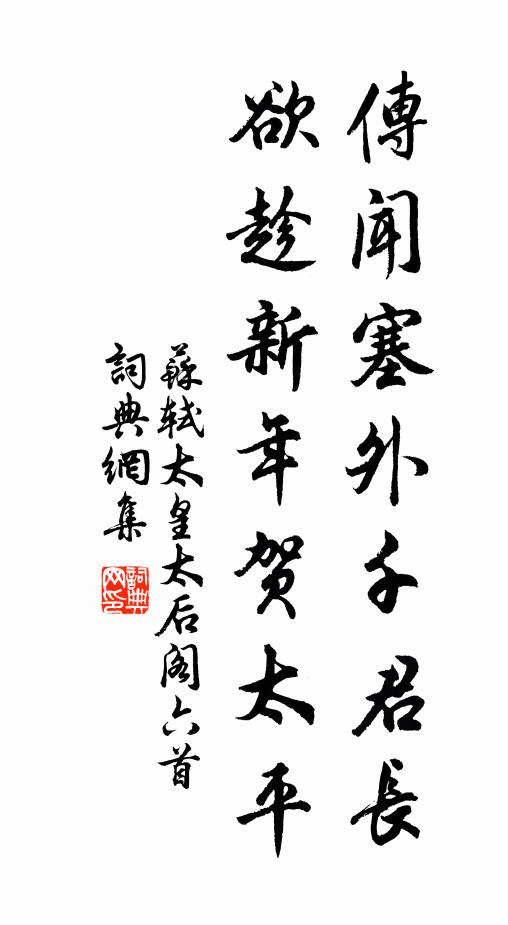 傳聞塞外千君長
欲趁新年賀太平
蘇軾太皇太后阁六首
詞典網集
詞典
网印